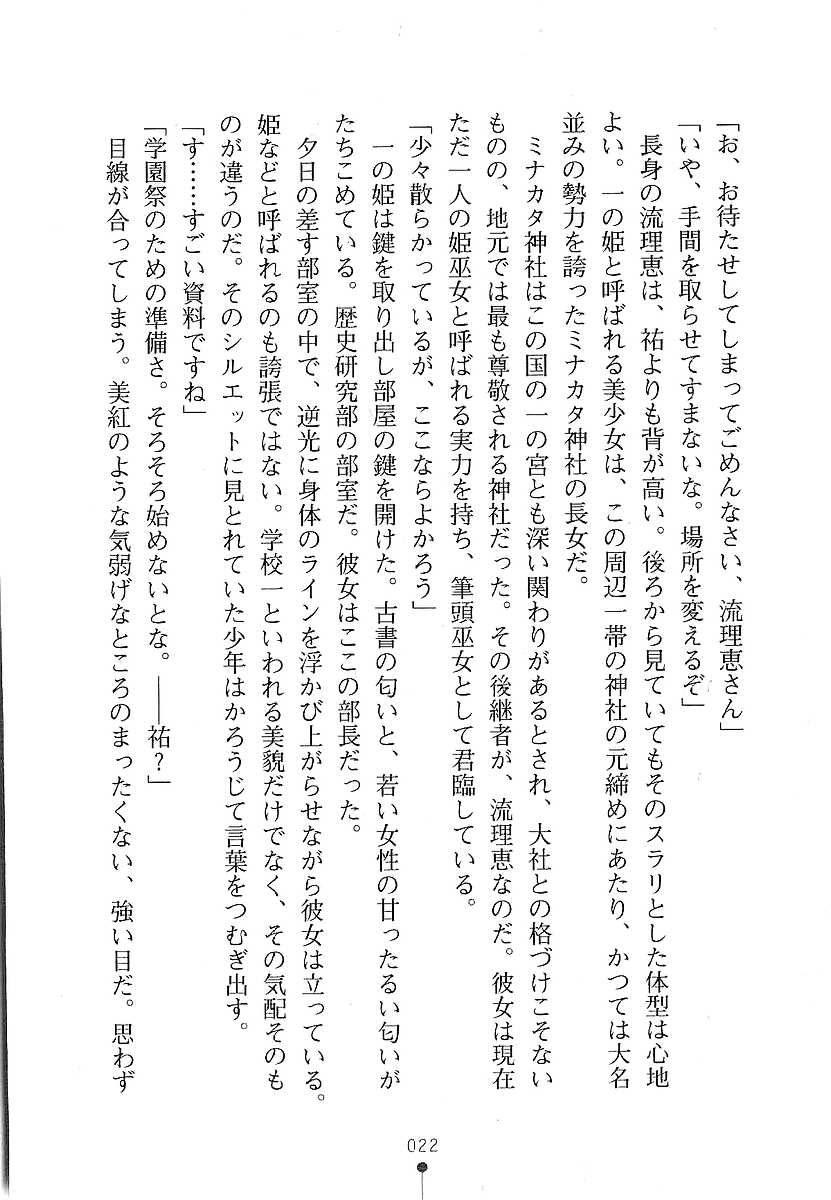 「お、お待たせしてしまってごめんなさい、流理恵さん」
「いや、手間を取らせてすまないな。場所を変えるぞ」
長身の流理恵は、祐よりも背が高い。後ろから見ていてもそのスラリとした体型は心地
よい。一の姫と呼ばれる美少女は、この周辺一帯の神社の元締めにあたり、かつては大名
並みの勢力を誇ったミナカタ神社の長女だ。
ミナカタ神社はこの国の一の宮とも深い関わりがあるとされ、大社との格づけこそない
ものの、地元では最も尊敬される神社だった。その後継者が、流理恵なのだ。彼女は現在
ただ一人の姫巫女と呼ばれる実力を持ち、筆頭巫女として君臨している。
「少々散らかっているが、ここならよかろう」
一の姫は鍵を取り出し部屋の鍵を開けた。古書の匂いと、若い女性の甘ったるい匂いが
たちこめている。歴史研究部の部室だ。彼女はここの部長だった。
夕日の差す部室の中で、逆光に身体のラインを浮かび上がらせながら彼女は立っている。
姫などと呼ばれるのも誇張ではない。学校一といわれる美貌だけでなく、その気配そのも
のが違うのだ。そのシルエットに見とれていた少年はかろうじて言葉をつむぎ出す。
「す……すごい資料ですね」
「学園祭のための準備さ。そろそろ始めないとな。――祐？」
目線が合ってしまう。美紅のような気弱げなところのまったくない、強い目だ。思わず
022